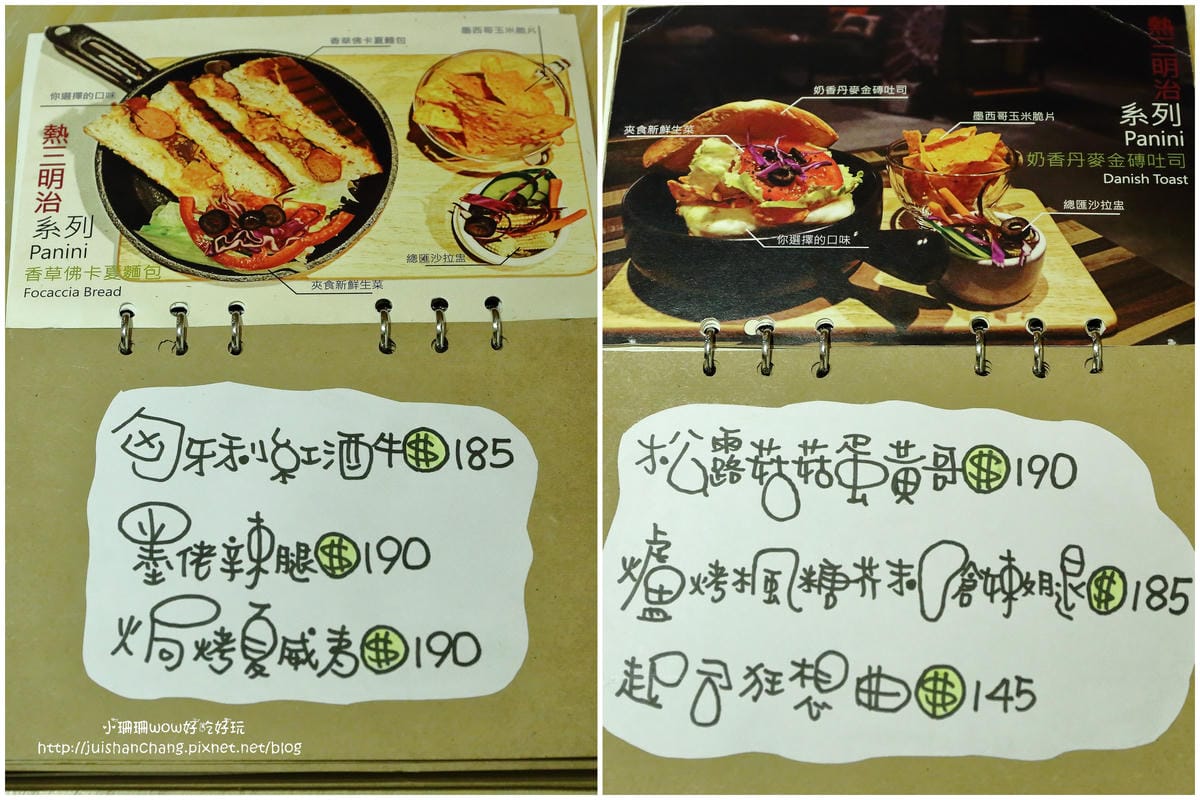 香草佛卡夏麵包
墨西哥玉米脆片
你選擇的口味
熱三明治
系列
Panini
香草佛卡夏麵包
Focaccia Bread
總匯沙拉盅
夾食新鮮生菜
匈牙利紅酒牛$185
墨佬辣腿$190
焗烤夏威夷$190
小珊珊wow好吃好玩
http://juishanchang.pixnet.net/blog
奶香丹麥金磚吐司
夾食新鮮生菜
墨西哥玉米脆片
熱三明治
系列
Panini
奶香丹麥金磚吐司
Danish Toast
總匯沙拉盅
你選擇的口味
松露菇菇蛋黃哥$190
爐烤楓糖芥末嫩腿$185
起司狂想曲$145